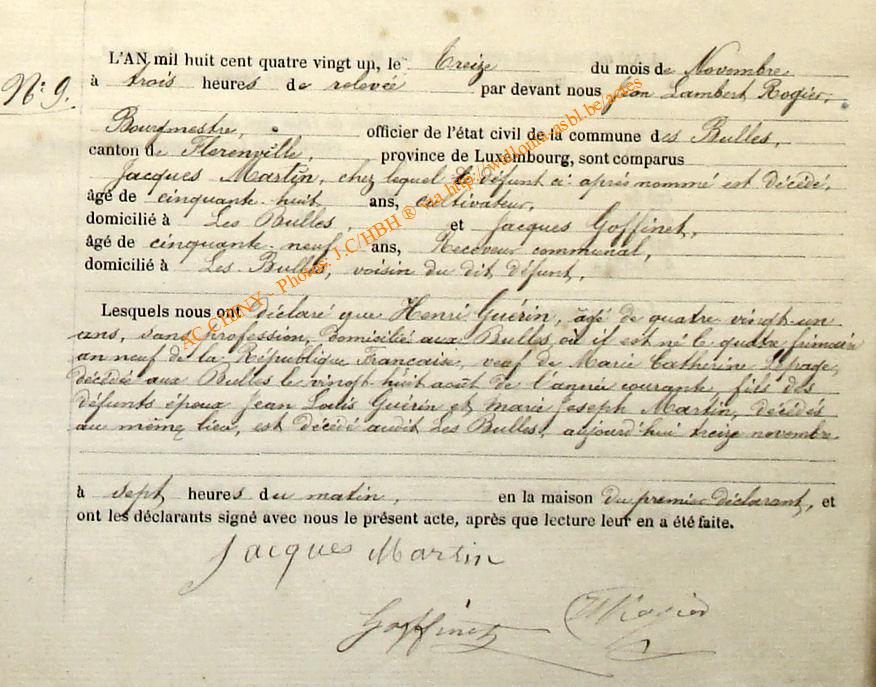 L'AN mil huit cent quatre vingt un, le Treize du mois de Novembre
N° 9.
à trois heures de relevée par devant nous Jean Lambert Rogier,
Bourgmestre, officier de l'état civil de la commune des Bulles,
canton de Florenville, province de Luxembourg, sont comparus
Jacques Martin, chez lequel le défunt ci après nommé est décédé,
âgé de cinquante-huit ans, cultivateur,
domicilié à Les Bulles et Jacques Goffinet,
âgé de cinquante-neuf ans, Receveur communal,
domicilié à Les Bulles, voisin du dit défunt,
Lesquels nous ont déclaré que Henri Guérin, âgé de quatre vingt-un
ans, sans profession, domicilié aux Bulles où il est né le quatre frimaire
an neuf de la République Française, veuf de Marie Catherine Lepage,
décédée aux Bulles le vingt huit août de l'année courante, fils des
défunts époux Jean Louis Guérin et Marie Joseph Martin, décédés
au même lieu, est décédé audit Les Bulles, aujourd'hui treize novembre
à sept heures du matin, en la maison du premier déclarant, et
ont les déclarants signé avec nous le présent acte, après que lecture leur en a été faite.
Jacques Martin
Goffinet Rogier
AC CHINY - Photos: J.C/HBH ® via http://widlonia-asbl.be/actes